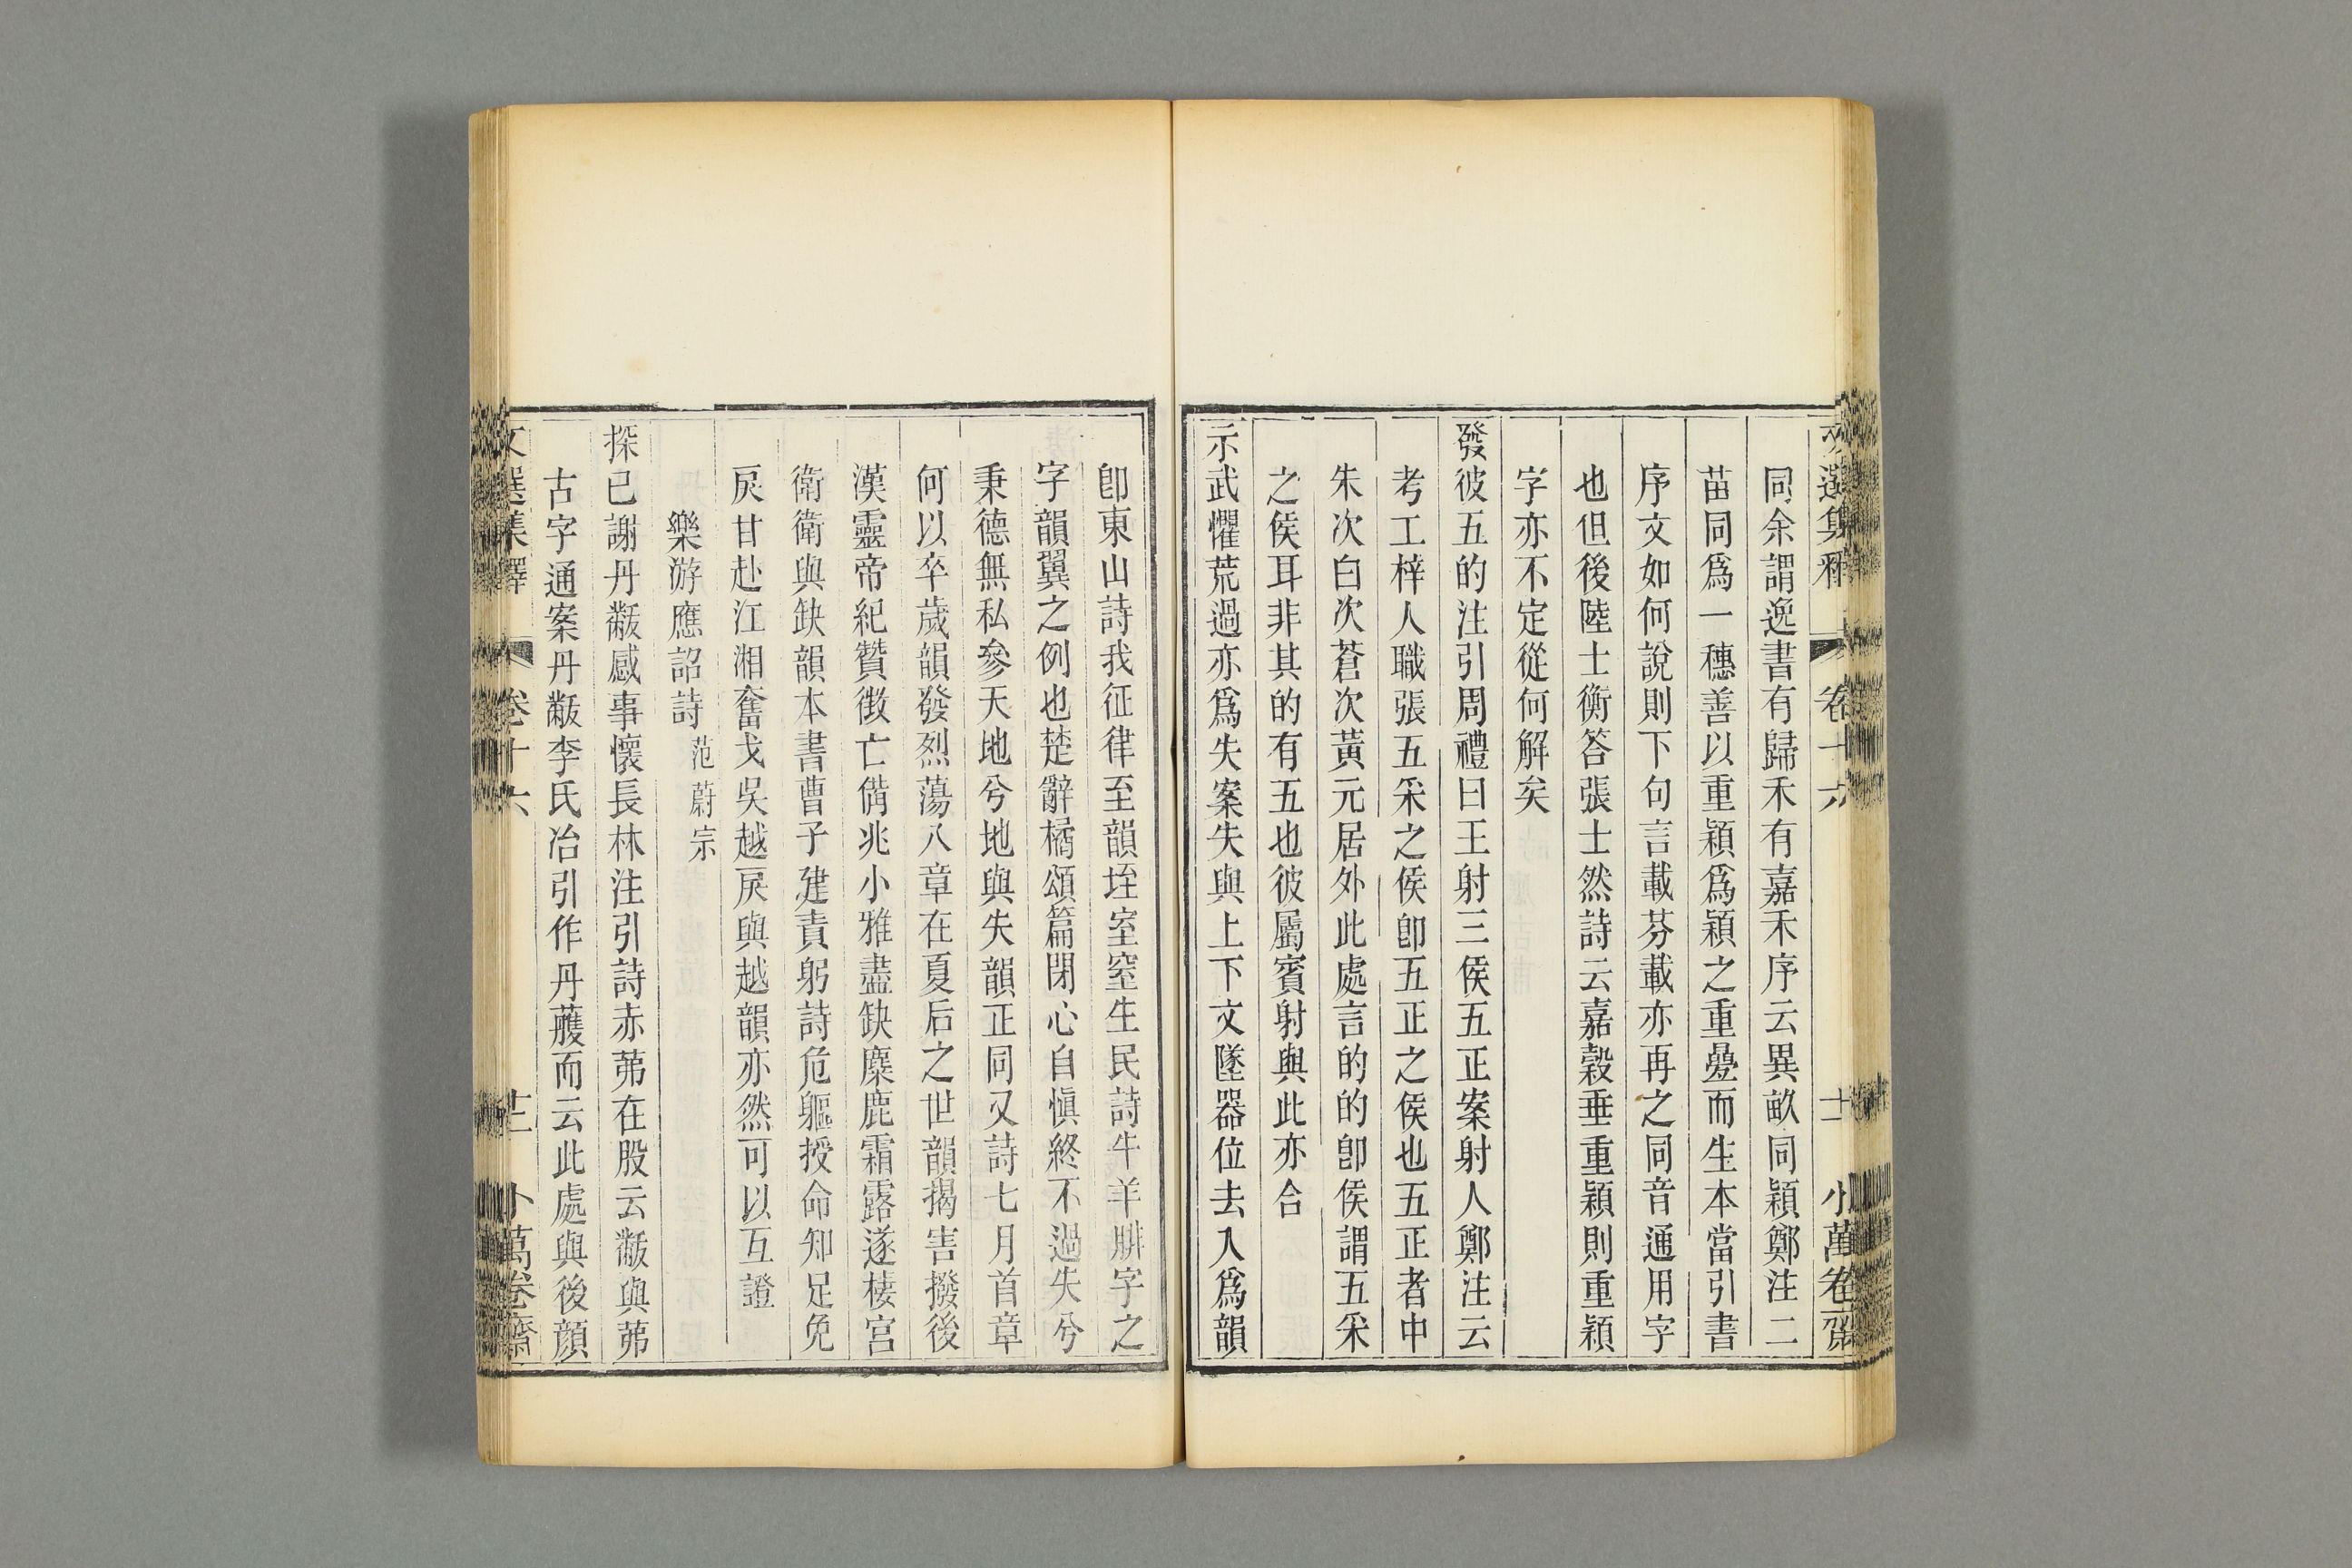 文選集釋 卷十六 十一 小萬卷齋
同余謂逸書有歸禾有嘉禾序云異畝同穎鄭注二
苗同爲一穗善以重穎爲穎之重曡而生本當引書
序文如何說則下句言載芬載亦再之同音通用字
也但後陸士衡答張士然詩云嘉穀垂重穎則重穎
字亦不定從何解矣
發彼五的注引周禮曰王射三侯五正案射人鄭注云
考工梓人職張五采之侯卽五正之侯也五正者中
朱次白次蒼次黃元居外此處言的的卽侯謂五采
之侯耳非其的有五也彼屬賓射與此亦合
示武懼荒過亦爲失案失與上下文墜器位去入爲韻
卽東山詩我征律至韻垤室窒生民詩牛羊腓字之
字韻翼之例也楚辭橘頌篇閉心自愼終不過失兮
秉德無私參天地兮地與失韻正同又詩七月首章
何以卒歲韻發烈蕩八章在夏后之世韻揭害撥後
漢靈帝紀贊徵亡備兆小雅盡缺麋鹿霜露遂棲宮
衛衛與缺韻本書曹子建責躬詩危軀授命知足免
戾甘赴江湘奮戈吳越戾與越韻亦然可以互證
樂游應詔詩 范蔚宗
探己謝丹黻感事懷長林注引詩赤芾在股云黻與芾
古字通案丹黻李氏冶引作丹雘而云此處與後顏
文選集釋 卷十六 十二 小萬卷齋